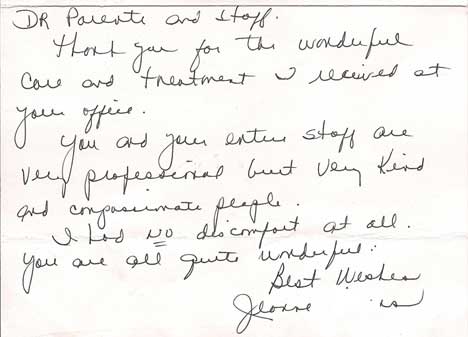 DR Parente and staff.
Thank you for the wonderful
care and treatment I received at
your office.
You and your entire staff are
very professional but very kind
and compassionate people.
I had NO discomfort at all.
You are all quite wonderful.
Best Wishes
Jeanne